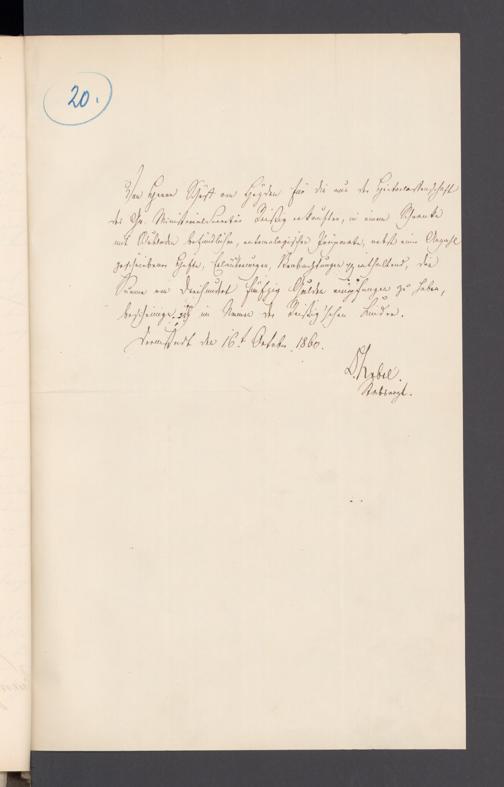 20.
Von Herrn Schöff von Heyden für die aus der Hinterlassenschaft
des Gr. Ministerialsecretär Reissig erkauften, in einem Schranke
mit Schubladen befindlichen, entomologischen Präparate, nebst einer Anzahl
geschriebener Hefte, Erläuterungen, Beobachtungen enthaltend, die
Summe von Dreihundert fünfzig Gulden empfangen zu haben,
bescheinige ich im Namen der Reissig'schen Kinder.
Darmstadt den 16t October 1860.
Stabsarzt.